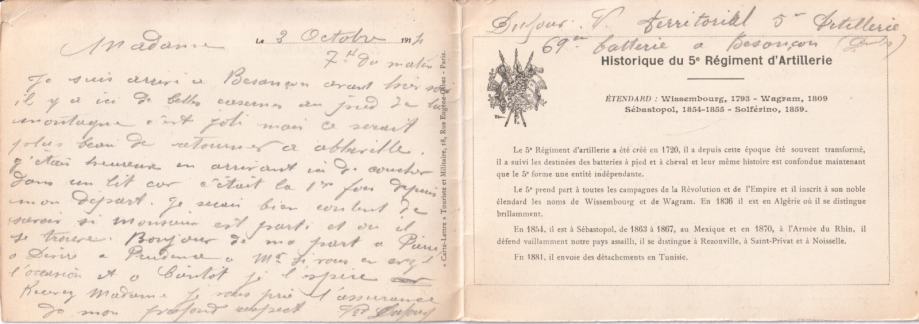 Le 3 Octobre 1914
Madame 7 H du matin
Je suis arrivé a Besançon avant hier soir
il y a ici de belles casernes au pied de la
montagne c'est joli mais ce serait
plus beau de retourner a abbeville.
j'étais heureux en arrivant ici de coucher
dans un lit car c'était la 1re fois depuis
mon depart. Je serais bien content de
savoir si monsieur est parti et ou il
se trouve. Bonjour de ma part a Pierre
a Désiré a Prudence a Mr si vous en avez
l'occasion et a Bientot je l'espère
Recevez Madame je vous prie l'assurance
de mon profond respect Vor Dufour
« Carte-Lettre » Touriste et Militaire, 18, Rue Eugène, Paris.
Dufour V. Territorial 5e Artillerie
69e batterie a Besançon (Doubs)
Historique du 5e Régiment d'Artillerie
ÉTENDARD : Wissembourg, 1793 - Wagram, 1809
Sébastopol, 1854-1855 - Solférino, 1859.
Le 5e Régiment d'artillerie a été créé en 1720, il a depuis cette époque été souvent transformé,
il a suivi les destinées des batteries à pied et à cheval et leur même histoire est confondue maintenant
que le 5e forme une entité indépendante.
Le 5e prend part à toutes les campagnes de la Révolution et de l'Empire et il inscrit à son noble
étendard les noms de Wissembourg et de Wagram. En 1836 il est en Algérie où il se distingue
brillamment.
En 1854, il est à Sébastopol, de 1863 à 1867, au Mexique et en 1870, à l'Armée du Rhin, il
défend vaillamment notre pays assailli, il se distingue à Rezonville, à Saint-Privat et à Noisselle.
En 1881, il envoie des détachements en Tunisie.